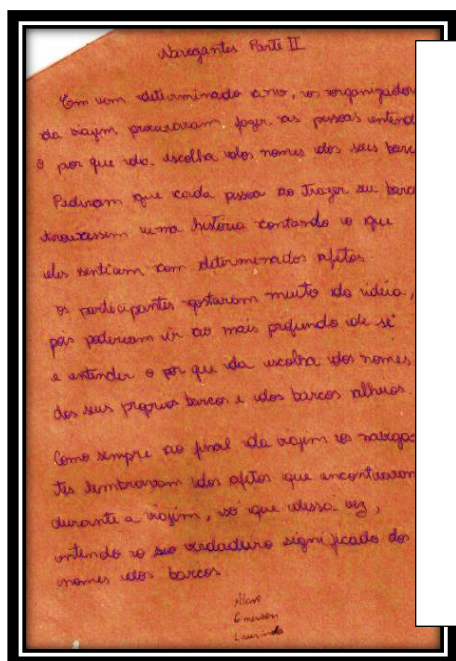 Navegantes Parte II
Em um determinado ano, os organizador
da viajem procuraram fazer as pessoas entend
o por que da escolha dos nomes dos seus barc
Pediram que cada pessoa ao trazer seu barc
trouxessem uma história contando o que
eles sentiam com determinados afetos.
os participantes gostaram muito da idéia,
pois poderiam ir ao mais profundo de sí
e entender o por que da escolha dos nomes
dos seus proprios barcos e dos barcos alheios.
Como sempre ao final da viajem os navega
tes lembravam dos afetos que encontraram
durante a viajim, só que dessa vez,
intendo o seo verdadeiro significado dos
nomes dos barcos.
Emerson
Laurinda